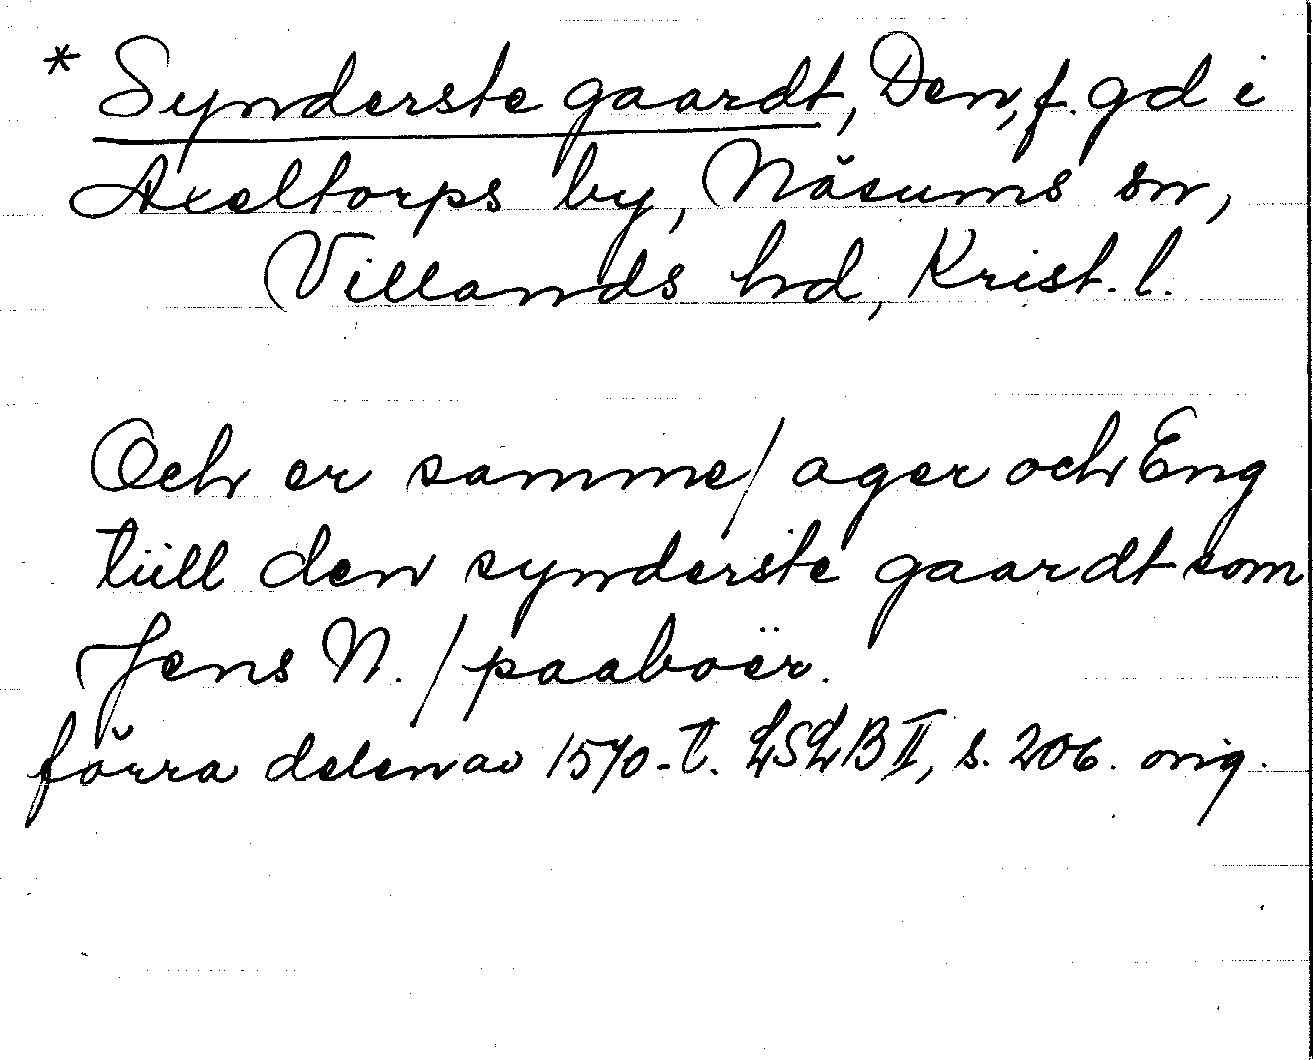 * Synderste gaardt, Den, f. gd i
Axeltorps by, Näsums sn,
Villands hd, Krist. l.
Och er samme/ ager och Eng
tiill den synderste gaardt som
Jens N. / paaboër.
förra delen av 1570-t. LSLB II, s. 206. orig.